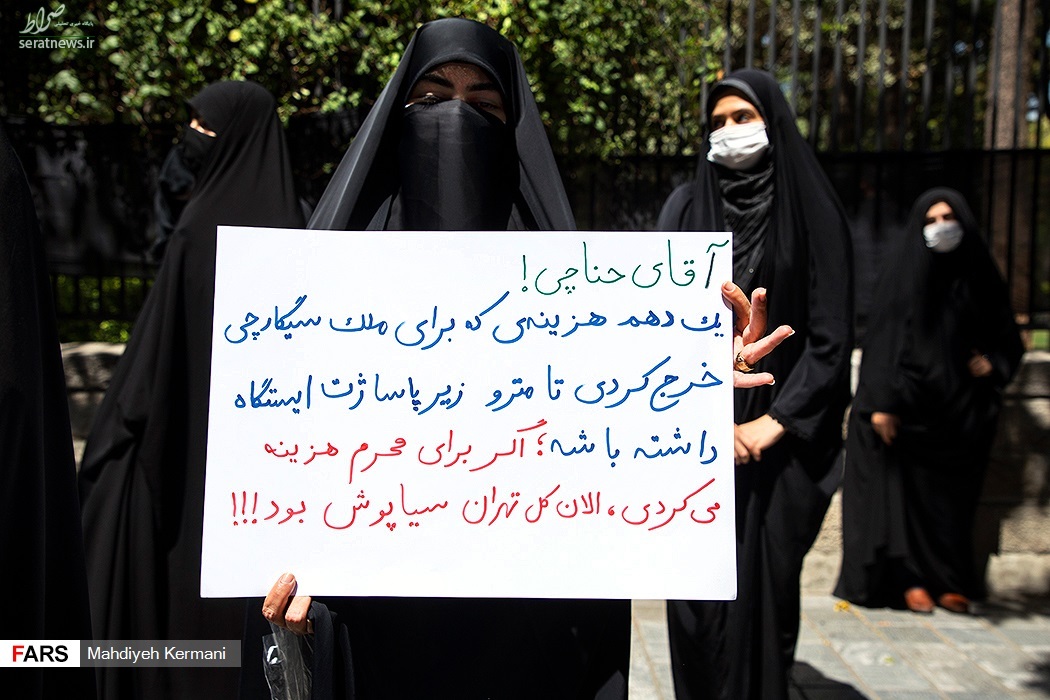 صراط
پایگاه خبری تحلیلی
seratnews.ir
آقای حناچی!
یک دهم هزینه‌ی که برای ملک سیگارچی
خرج کردی تا مترو زیر پاساژت ایستگاه
داشته باشه؛ اگر برای محرم هزینه
می‌کردی، الان کل تهران سیاپوش بود!!!
FARS Mahdiyeh Kermani